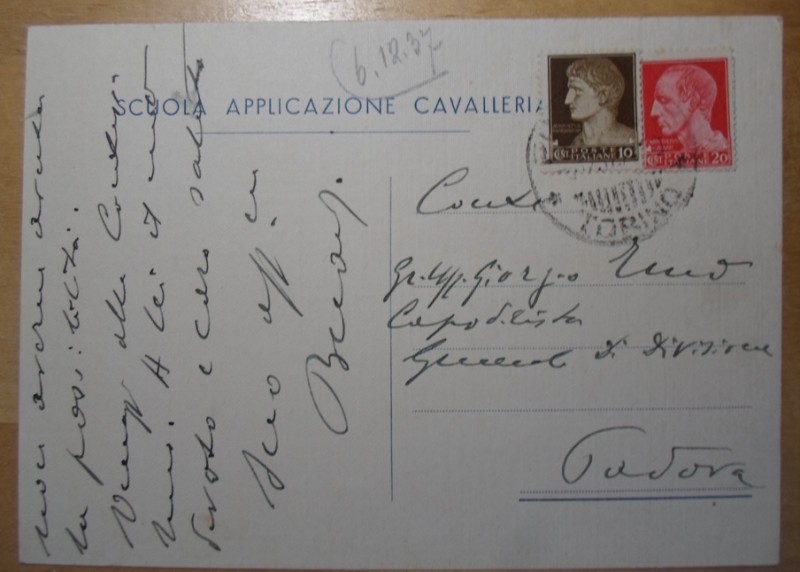 6.12.37
SCUOLA APPLICAZIONE CAVALLERIA
POSTE ITALIANE 10
POSTE ITALIANE 20
TORINO
non avervi avuta
la possibilità.
alla
A lei il mio
devoto e caro saluto
Suo aff.
Conte
Gr. Uff. Giorgio Emo
Capodilista
Generale Di Divisione
Padova